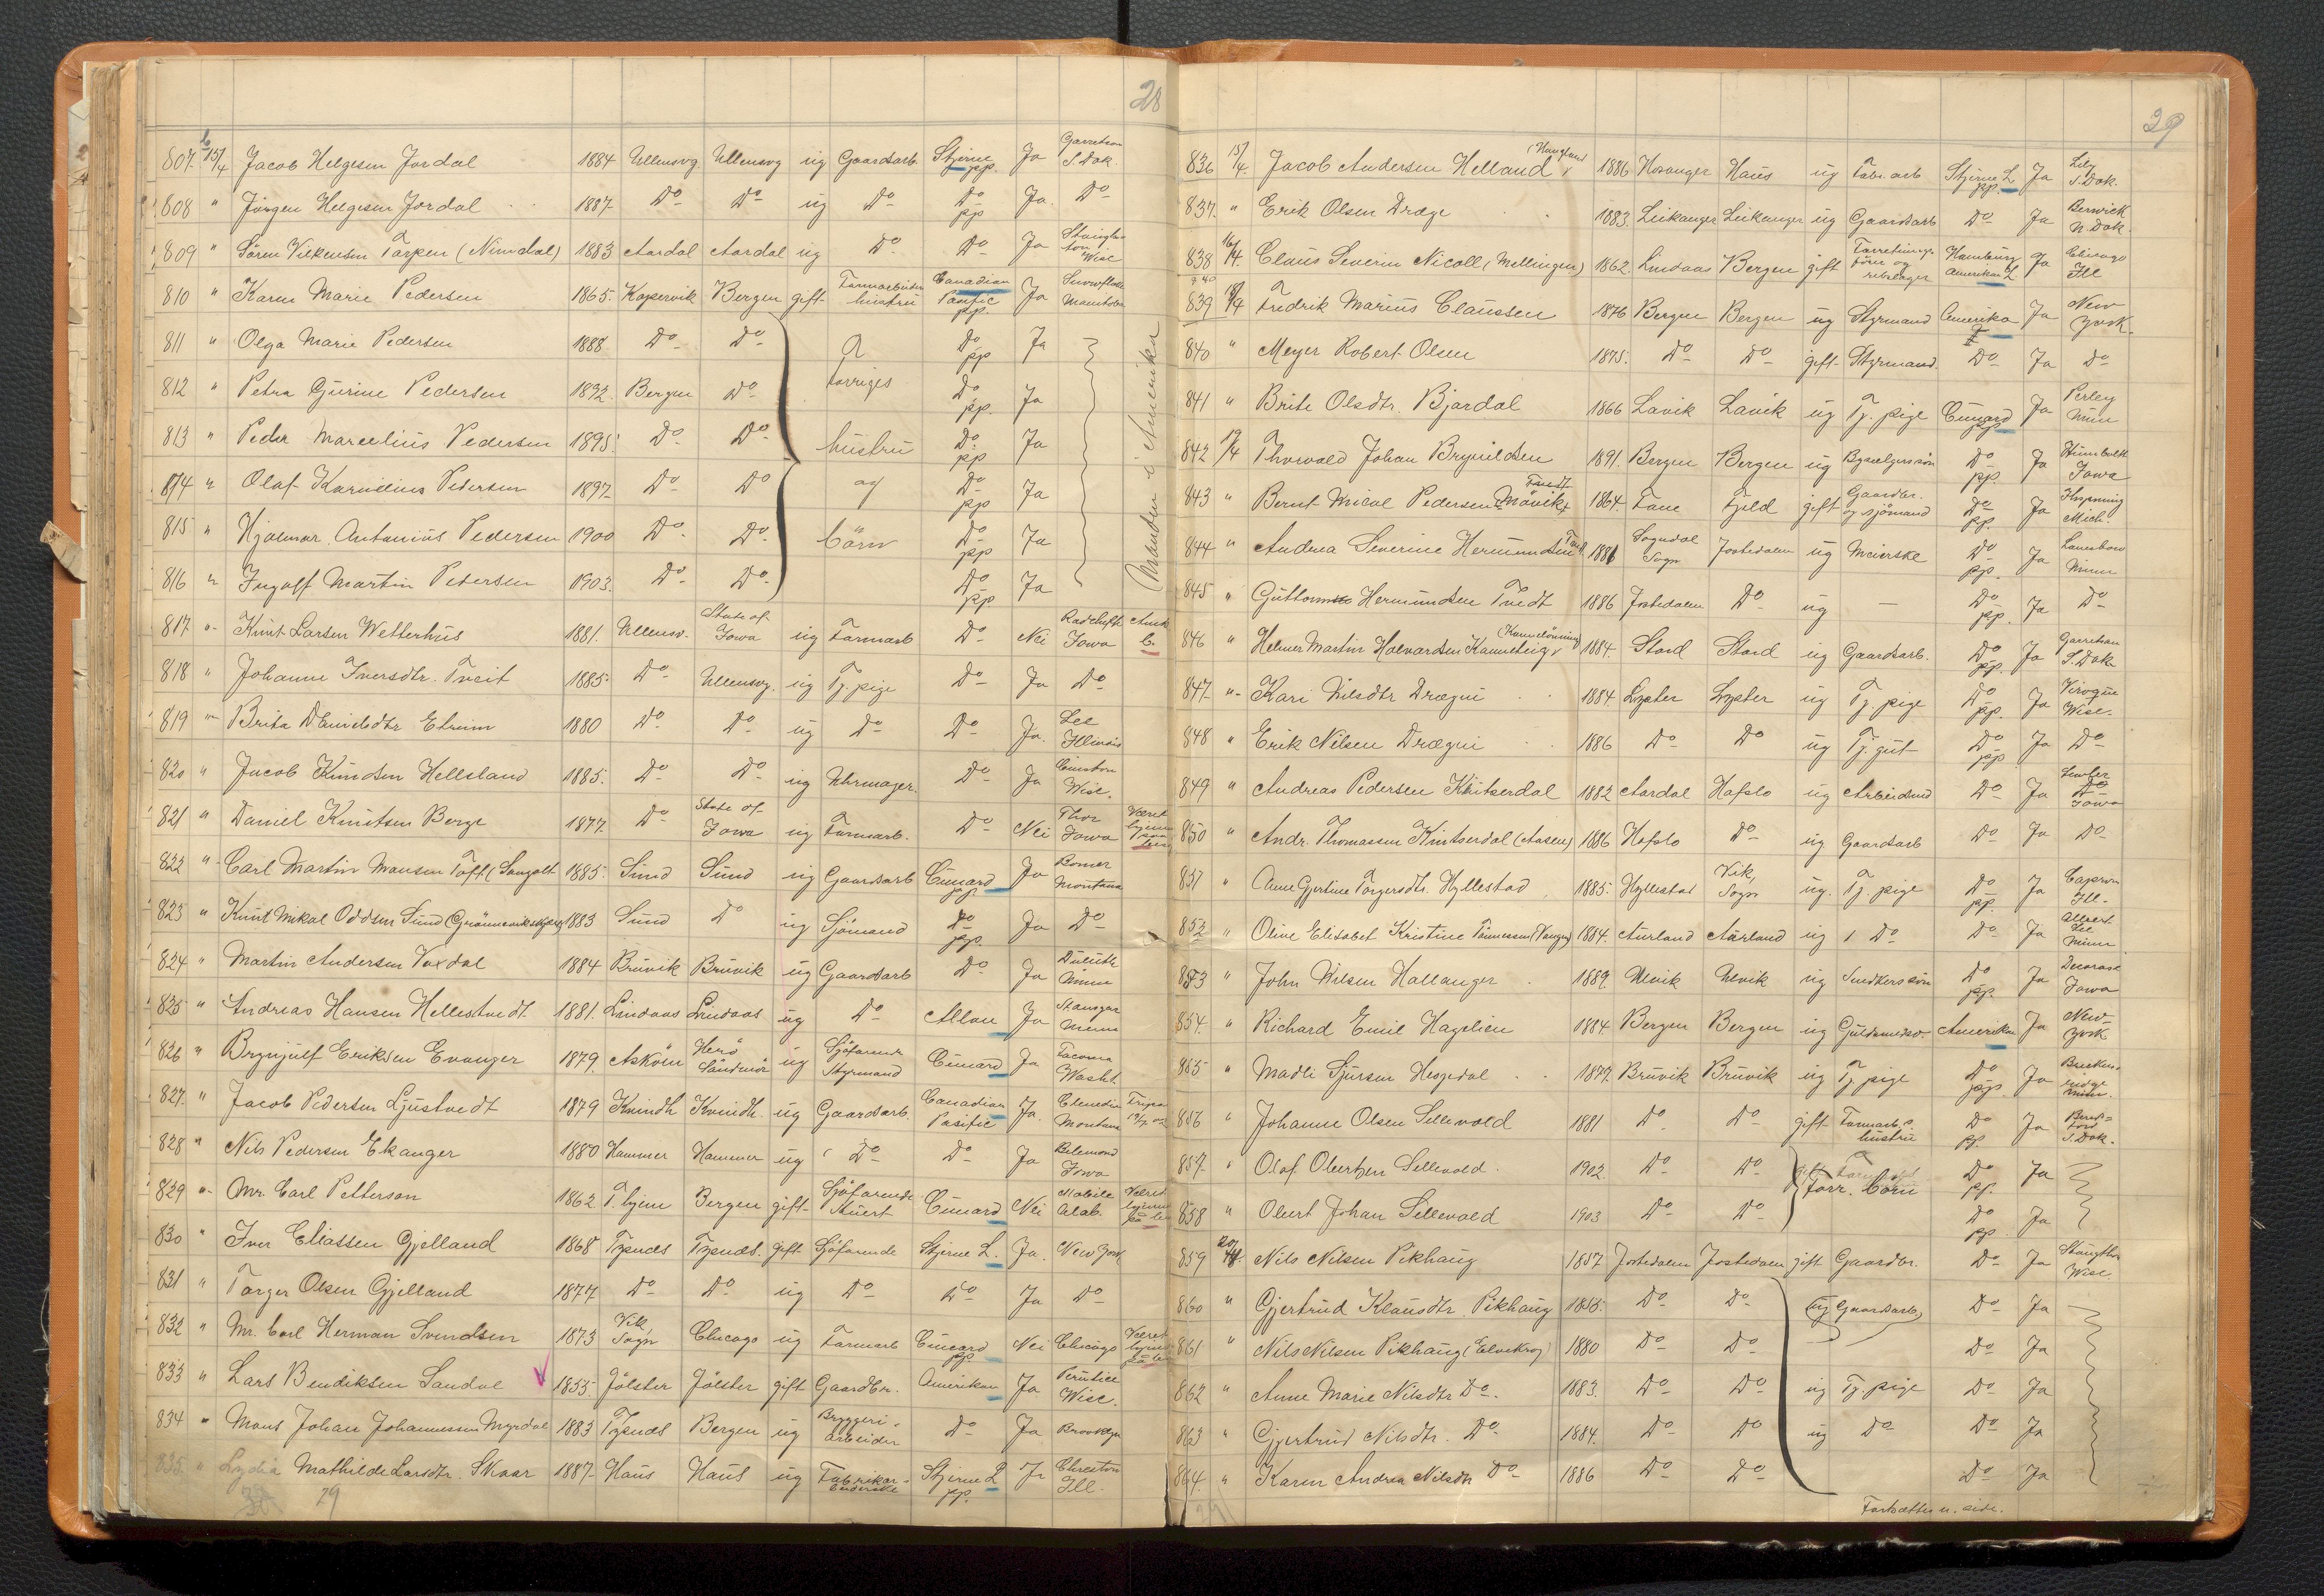 28
807. 15/4 Jacob Helgesen Jordal 1884 Ullensvg Ullensvg ug Gaardsarb. Stjerne pp. Ja Garretson S. Dak.
808 " Jörgen Helgesen Jordal 1887. Do Do ug Do Do pp Ja. Do
809 " Sören Vilkensen Tarpen (Nundal) 1883 Aardal Aardal ug Do Do Ja Wisc
810 " Karen Marie Pedersen 1865. Kopervik Bergen gift Farmarbeider hustru Canadian Pacific pp. Ja Manitoba
811 " Olga Marie Pedersen 1888 Do Do Do pp Ja
812 " Petra Gurine Pedersen 1892. Bergen Do Forriges Do pp. Ja
813 " Peder Marcelius Pedersen 1895. Do Do hustru Do pp Ja
814 " Olaf Kornelius Pedersen 1897 Do Do og Do pp Ja
815 " Hjalmar Antonius Pedersen 1900 Do Do börn Do pp Ja
816 " Ingolf Martin Pedersen 1903. Do Do Do pp. Ja
Manden i Amerika
817. " Knut Larsen Wetterhus 1881. Ullensv. State of Iowa ug Farmarb Do Nei Radcliff Iowa Amk b.
818 " Johanne Iversdtr. Tveit 1885. Do Ullensvg. ug Tj. pige Do Ja Do
819 " Brita DEnielsdtr Etreim 1880 Do Do ug Do Do Ja. Lee Illinois
820 " Jacob Knudsen Hellsland 1885. Do Do ug Uhrmager. Do Ja Wisc.
821 " Daniel Knutsen Berge 1877 Do State of Iowa ug Farmarb. Do Nei Thor Iowa Været hjemme
822 " Carl Martin Monsen Toft (Sangolt 1885. Sund Sund ug Gaardsarb Cunard pp. Ja Montana
823 " Knut Mikal Oddsen Sund 1883 Sund Do ug Sjömand Do pp. Ja Do
824 " Martin Andersen Vaxdal 1884 Bruvik Bruvik ug Gaardsarb Do Ja Duluth Minn
825 " Andreas Hansen Hellestvedt 1881. Lindaas Lindaas ug Do Allan Ja Minn
826 " Brynjulf Eriksen Evanger 1879. Asköen Herö Söndmör ug Sjöfarende Styrmand Cunard Ja Tacoma Washt.
827. " Jacob Pedersen Ljustvedt 1879 Kvindh Kvindh. ug Gaardsarb. Canadian Pasific Ja. Montana
828 " Nils Pedersen Ekanger 1880 Hammer Hammer ug Do Do Ja Belmond Iowa
829 " Mr. Carl Petterson 1862 T. hjem Bergen gift Sjöfarende Stuert Cunard Nei Mobile Alab. Været hjemme
830 " Iver Eliassen Gjelland 1868 Tysnes Tysnes. gift Sjöfarende Stjerne L. Ja. New York
831 " Torger Olsen Gjelland 1877 Do Do ug Do Do Ja Do
832 " Mr. Carl Herman Svendsen 1873 Vik, Sogn Chicago ug Farmarb Cunard pp. Nei Chicago Været hjem
833 " Lars Bendiksen Sandal 1855. Jölster Jölster gift Gaardbr. Amerikan Ja Wisc.
834 " Mons Johan Johannessen Myrdal 1883 Tysnes Bergen ug Bryggeriarbeider Do Ja Brooklyn
835 " Lydia Mathilde Larsdtr. Skaar 1887 Haus Haus ug Fabrikarbeiderske Stjerne L pp. Ja Ill.
29
29
836 15/4. Jacob Andersen Helland 1886 Hosanger Haus ug Fabr. arb Stjerne L pp. Ja Lily S. Dak.
837. " Erik Olsen Dræge 1883. Leikanger Leikanger ug Gaardsarb Do Ja Berwick N. Dak.
838 16/4. Claus Severin Nicoll (Mellingen) 1862. Lindaas Bergen gift Hamburg Amerika L Ja Chicago Ill
839 18/4 Fredrik Marius Claussen 1876 Bergen Bergen ug Styrmand Amerika Ja New York.
840 " Meyer Robert Olsen 1875. Do Do gift Styrmand. Do Ja Do
841 " Brite Olsdtr. Bjordal 1866 Lavik Lavik ug Tj. pige Cunard pp Ja Perley Minn
842 19/4 Thorvald Johan Brynildsen 1891. Bergen Bergen ug Do pp. Ja Humboldt Iowa
843 " Bernt Mical Pedersen Mövik 1864. Fane Fjeld gift Gaardbr. og sjömand Do pp. Ja Mich.
844 " Andrea Severine Hermundsen 1881 Sogndal Sogn Jostedalen ug Meierske Do pp. Ja Minn
845 " Guttorm Hermundsen Tvedt 1886 Jostedalen Do ug — Do pp. Ja Do
846 " Helmer Martin Halvardsen 1884. Stord Stord ug Gaardsarb. Do pp. Ja Garretson S. Dak
847 " Kari Nilsdtr Drægni 1884. Lyster Lyster ug Tj. pige Do pp. Ja Viroque Wisc.
848 " Erik Nilsen Drægni 1886 Do Do ug Tj. gut Do pp Ja Do
849 " Andreas Pedersen Kintserdal 1882 Aardal Hafslo ug Arbeidsmd Do Ja Iowa
850 " Andr. Thomassen Kintserdal (Aasen) 1886 Hafslo Do ug Gaardsarb Do Ja Do
851 " Anne Gjertine Torgersdtr. Hyllestad 1885. Hyllestad Vik, Sogn ug. Tj. pige Do pp. Ja Capron Ill.
852 " Oline Elisabet Kristine Tönnessen (Vangen) 1884. Aurland Aurland ug Do Do Ja Albert Lee Minn
853 " John Nilsen Hallanger 1889. Ulvik Ulvik ug Do pp. Ja Decorah Iowa
854. " Richard Emil Hagelien 1884. Bergen Bergen ug Guldsmedsv. Amerikan Ja New York
855 " Madli Sjursen Hesjedal 1879. Bruvik Bruvik ug Tj. pige Do pp. Ja Breckenridge Minn.
856 " Johanne Olsen Sellevold 1881 Do Do gift Farmarb.s hustru Do pp Ja S. Dak.
857 " Olaf Obertsen Sellevold 1902. Do Do Do pp. Ja
858 " Obert Johan Sellevold 1903 Do Do Forr. börn Do pp Ja
859 20/4. Nils Nilsen Pikhaug 1857 Jostedalen Jostedalen gift Gaardbr. Do Ja Wisc.
860 " Gjertrud Klausdtr. Pikhaug 1855. Do Do (ug Gaardsarb) Do Ja
861 " Nils Nilsen Pikhaug (Elvekrog) 1880 Do Do Do Ja
862 " Anne Marie Nilsdtr Do. 1883. Do Do ug Tj. pige Do Ja
863 " Gjertrud Nilsdtr. Do 1884. Do Do ug Do Do Ja
864. " Karen Andrea Nilsdtr Do 1886 Do Do Do Ja
Fortsættes n. side.